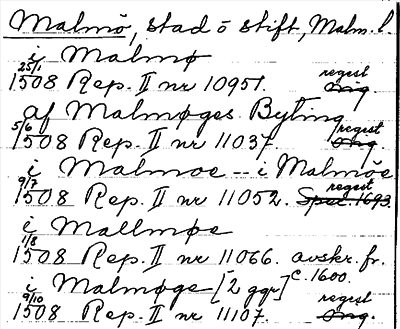 Malmö, stad o stift, Malm. l.
i Malmø
25/1 1508 Rep. II nr 10951. regest orig
af Malmøges Byting
5/6 1508 Rep. II nr 11037. regest orig.
i Malmoe -- i Malmöe
9/7 1508 Rep. II nr 11052. regest Spec. 1693.
i Mallmøe
1/8 1508 Rep. II nr 11066. avskr. fr. c. 1600.
i Malmøge [2 ggr]
9/10 1508 Rep. II nr 11107. regest orig.